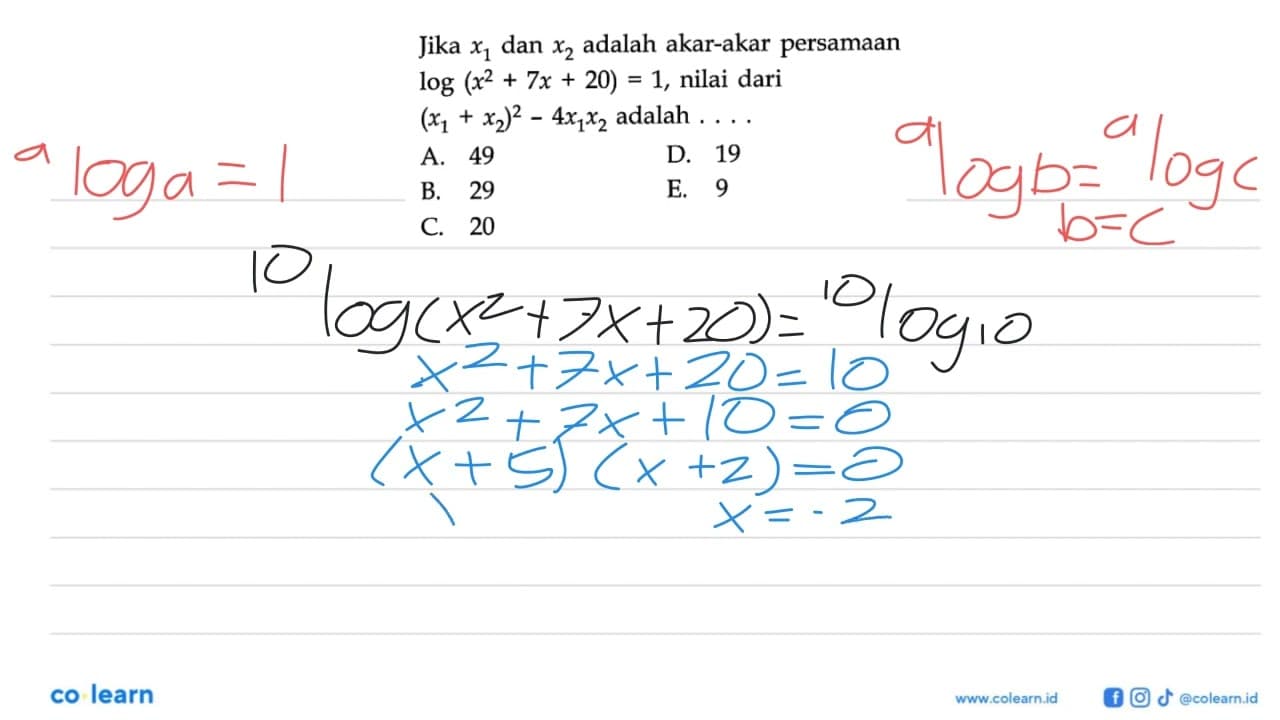 Jika x₁ dan x₂ adalah akar-akar persamaan
log (x² + 7x + 20) = 1, nilai dari
(x₁ + x₂)² – 4x₁x₂ adalah . . . .
A. 49 D. 19
B. 29 E. 9
C. 20
ᵃlog a = 1
ᵃlog b = ᵃlog c
b = c
¹⁰log(x²+7x+20) = ¹⁰log 10
x²+7x+20=10
x²+7x+10=0
(x+5)(x+2)=0
x=-2
co learn
www.colearn.id @colearn.id